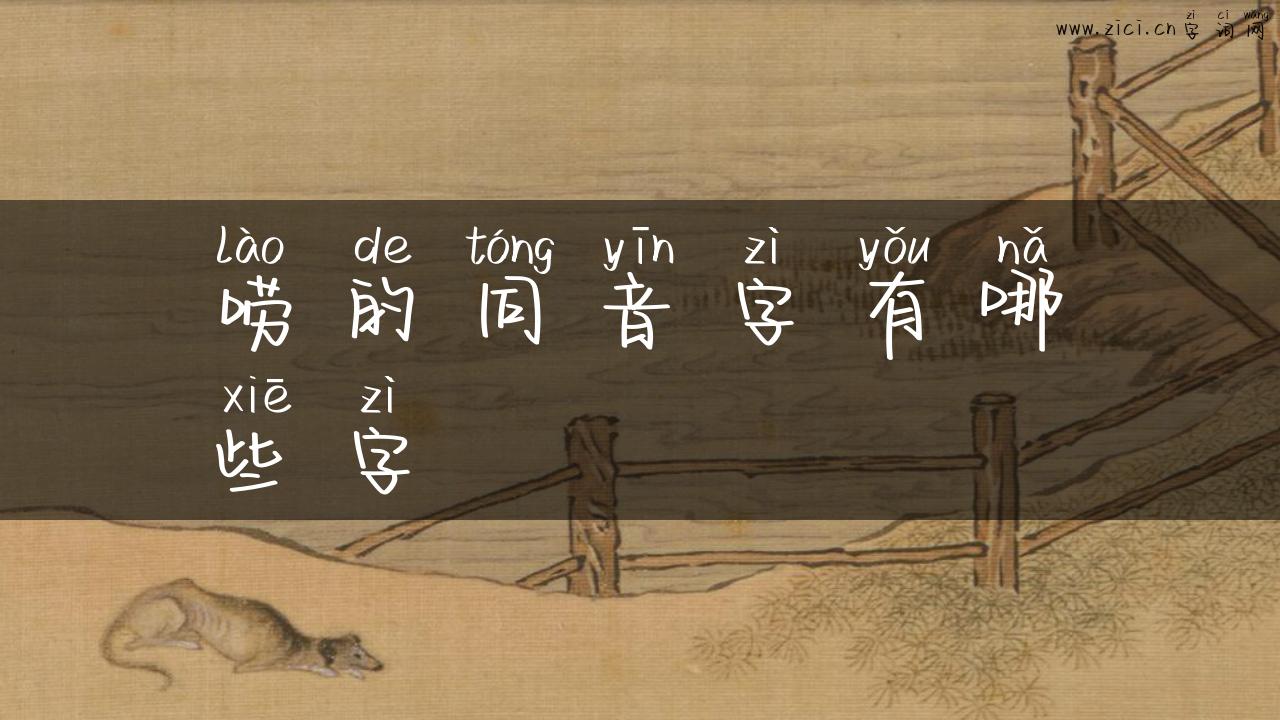 zì cí wǎng
www.zici.cn 字词网
lào de tóng yīn zì yǒu nǎ
唠的同音字有哪
xiē zì
些字